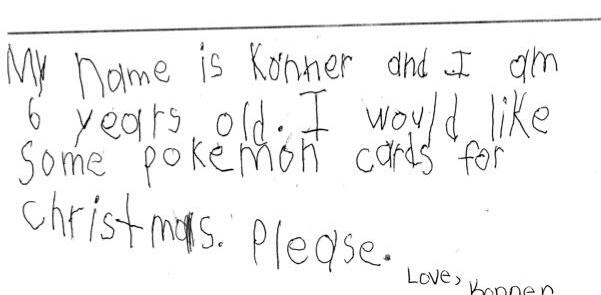 My name is Konner and I am
6 years old. I would like
some pokemon cards for
christmas. Please.
Love, Konner